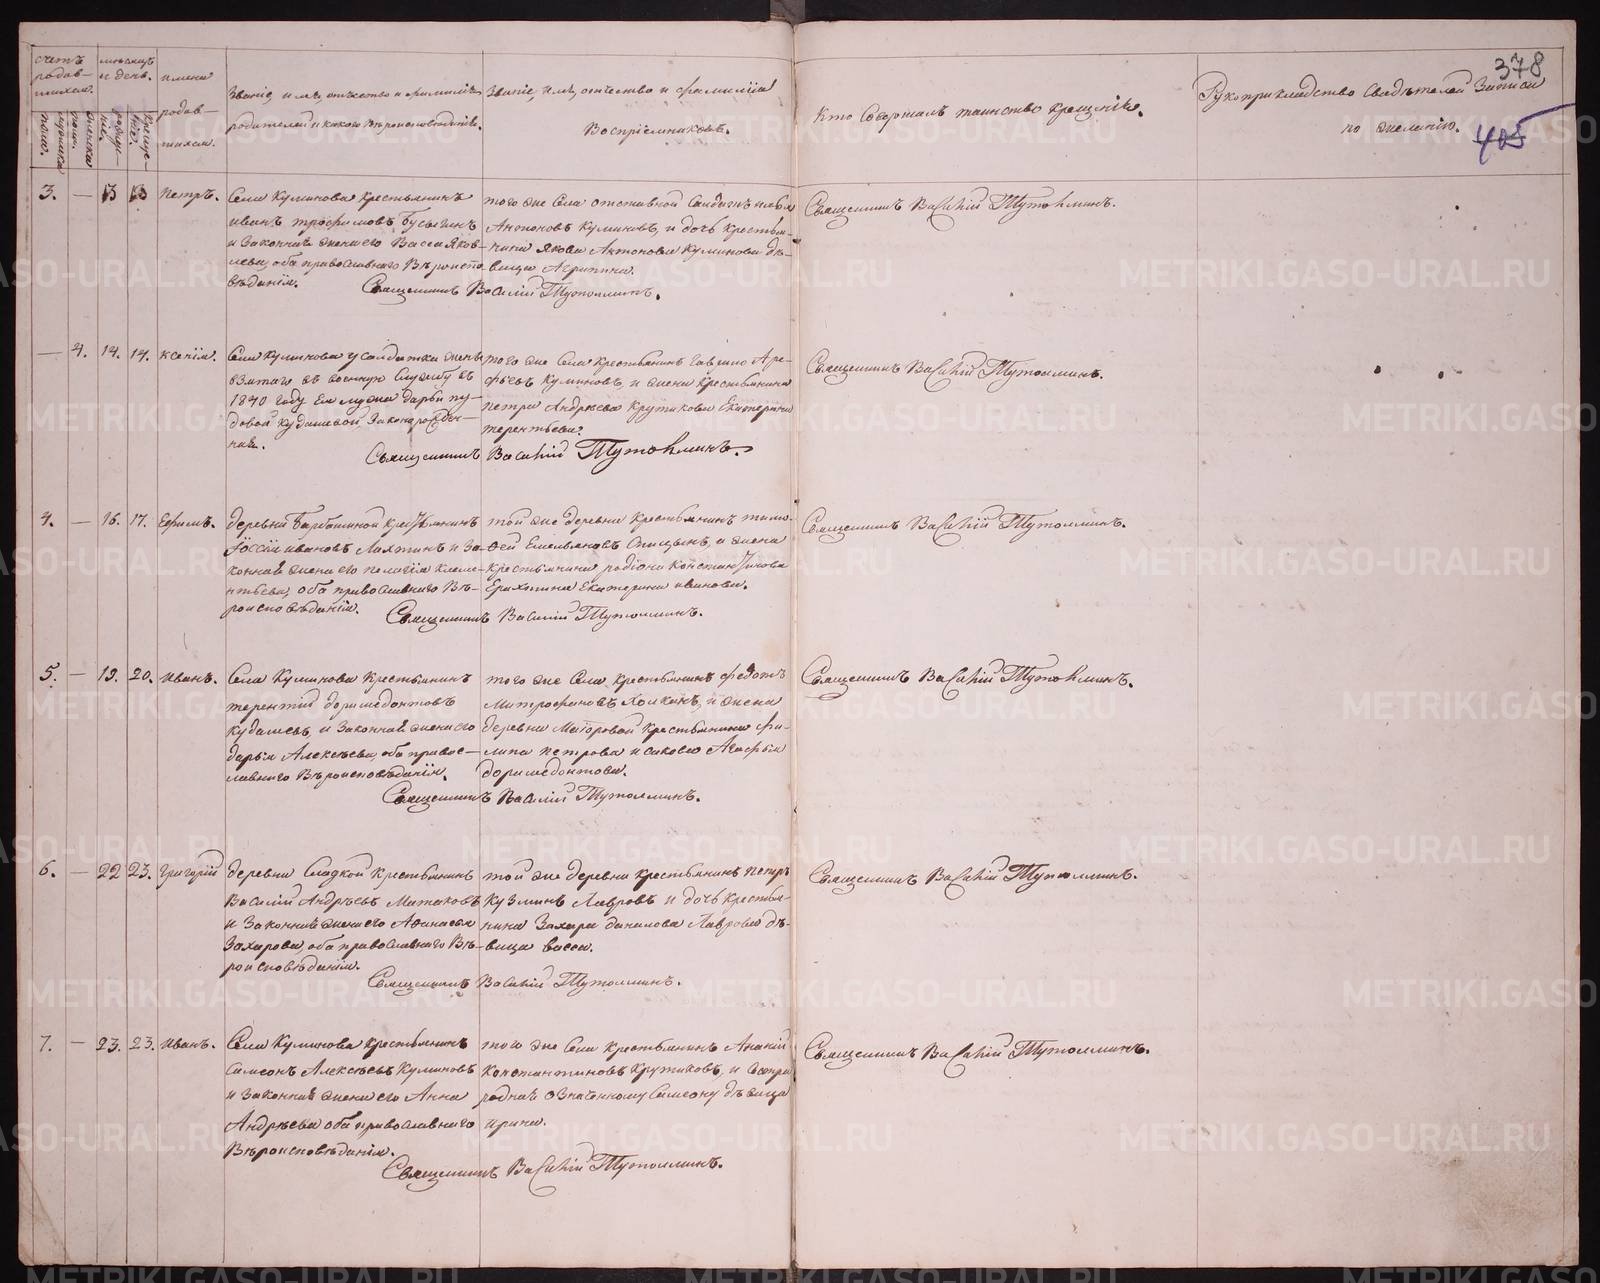 378
405
счетъ родившихся.
мужеска пола.
женска пола.
мѣсяцъ и день.
рождения.
крещения.
имена родившихся.
Званіе, имя, отчество и фамилія
родителей и какого вѣроисповѣданія.
Званіе, имя, отчество и фамилія
Воспріемниковъ.
Кто Совершалъ таинство крещенія.
Рукоприкладство Свидѣтелей Записи
по желанію.
3. — 13 13 Петръ.
Села Куликова крестьянинъ
иванъ трофимовъ Бусыгинъ
и Законная жена его Васса Яков-
лева, оба православнаго Вѣроиспо-
вѣданія.
того же Села отставной Солдатъ
Антоновъ Куликовъ, и дочь крестья-
нина Якова Антонова Куликова дѣ-
вица Агрипина.
Священникъ Василій Тутолминъ.
Священникъ Василій Тутолминъ.
— 4. 14. 14. ксенія.
Села Куликова у солдатки
взятаго въ военную Службу въ
1840 году Ея мужа дарьи
Кудашевой, Законорожден-
ная.
того же Села Крестьянинъ Гаврило Аре-
фьевъ Куликовъ, и жена крестьянина
петра Андреева Крутикова Екатерина
терентьева.
Священникъ Василій Тутолминъ.
Священникъ Василій Тутолминъ.
4. — 16. 17. Ефимъ.
деревни Барбашиной Крестьянинъ
ивановъ Лаптинъ и За-
конная жена его пелагія Клеме-
нтьева, оба православнаго Вѣ-
роисповѣданія.
той же деревни крестьянинъ тимо-
фей Емельяновъ Спицынъ, и жена
крестьянина родіона Константинова
Екатерина иванова.
Священникъ Василій Тутолминъ.
Священникъ Василій Тутолминъ.
5. — 19. 20. иванъ.
Села Куликова Крестьянинъ
терентій доримедонтовъ
кудашевъ, и Законная жена его
дарья Алексѣева, оба правос-
лавнаго Вѣроисповѣданія.
того же Села, крестьянинъ федотъ
Митрофановъ Холкинъ, и жена
деревни Маіоровой крестьянина фи-
липа петрова Агафья
доримедонтова.
Священникъ Василій Тутолминъ.
Священникъ Василій Тутолминъ.
6. — 22 23. Григорій
деревни Сладкой Крестьянинъ
Василій Андрѣевъ Матаковъ
и Законная жена его Афанасья
Захарова, оба православнаго Вѣ-
роисповѣданія.
той же деревни крестьянинъ петръ
Кузминъ Лавровъ и дочь Крестья-
нина Захара данилова Лаврова дѣ-
вица васса.
Священникъ Василій Тутолминъ.
Священникъ Василій Тутолминъ.
7. — 23. 23. иванъ.
Села Куликова крестьянинъ
Симеонъ Алексѣевъ Куликовъ
и Законная жена его Анна
Андрѣева оба православнаго
Вѣроисповѣданія.
того же Села Крестьянинъ Ананій
Константиновъ Крутиковъ, и Сестра
родная означенному Симеону дѣвица
ирина.
Священникъ Василій Тутолминъ.
Священникъ Василій Тутолминъ.
METRIKI.GASO-URAL.RU